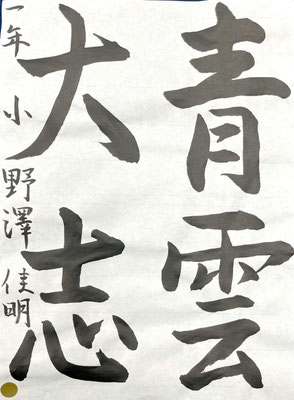 青雲
大志
一年 小野澤 佳明